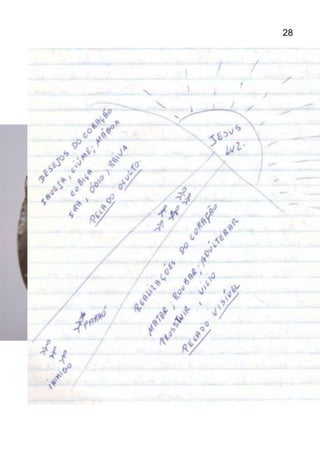 28
DESEJOS DO CORAÇÃO
INVEJA, CIÚME, MÁGOA
COBIÇA
IRA, ÓDIO, RAIVA
PECADO OCULTO.
JESUS
LUZ.
REALIZAÇÕES DO CORAÇÃO
MATAR, ROUBAR, ADULTERAR
PROSTITUIR, VICIO
PECADO VISÍVEL
INIMIGO